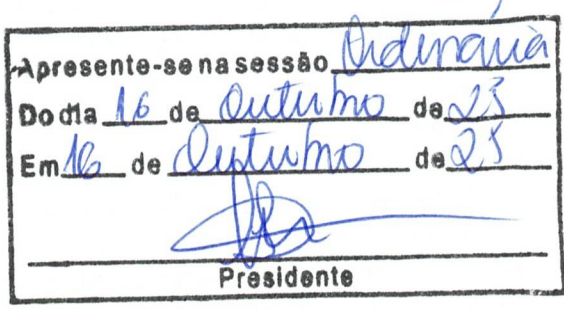 Apresente-se na sessão Ordinária
Do dia 16 de Outubro de 23
Em 16 de Outubro de 23
Presidente